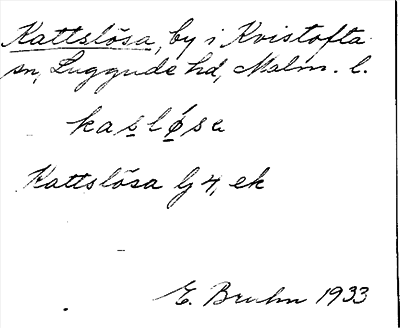 Kattslösa, by i Kvistofta
sn, Luggude hd, Malm. l.
kaslø̂sa
Kattslösa by 4, ek
E. Bruhn 1933